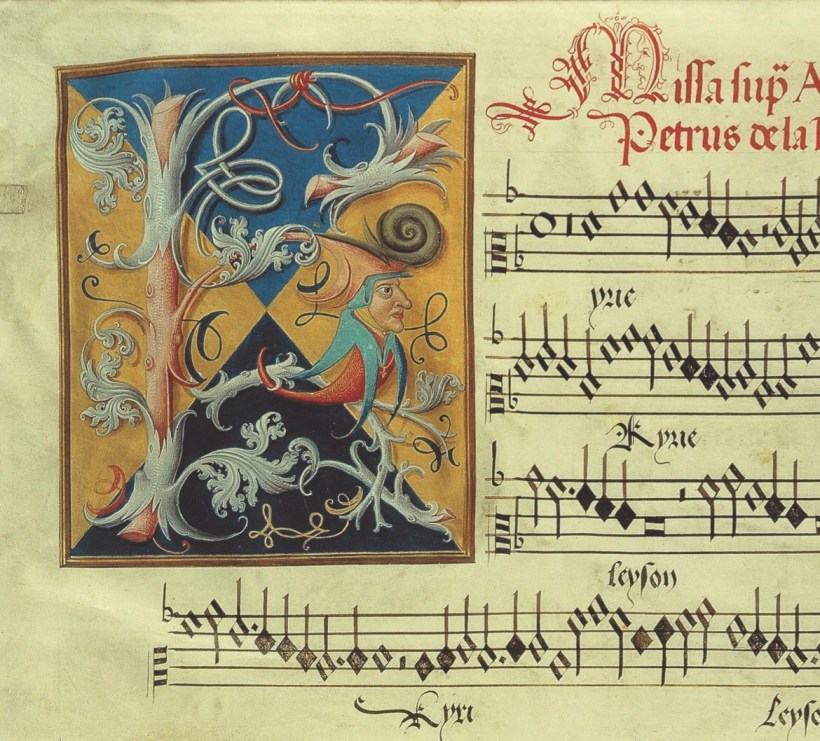 Missa sup̄ A
Petrus de la
yrie
Kyrie
leyson
Kyri Leyso